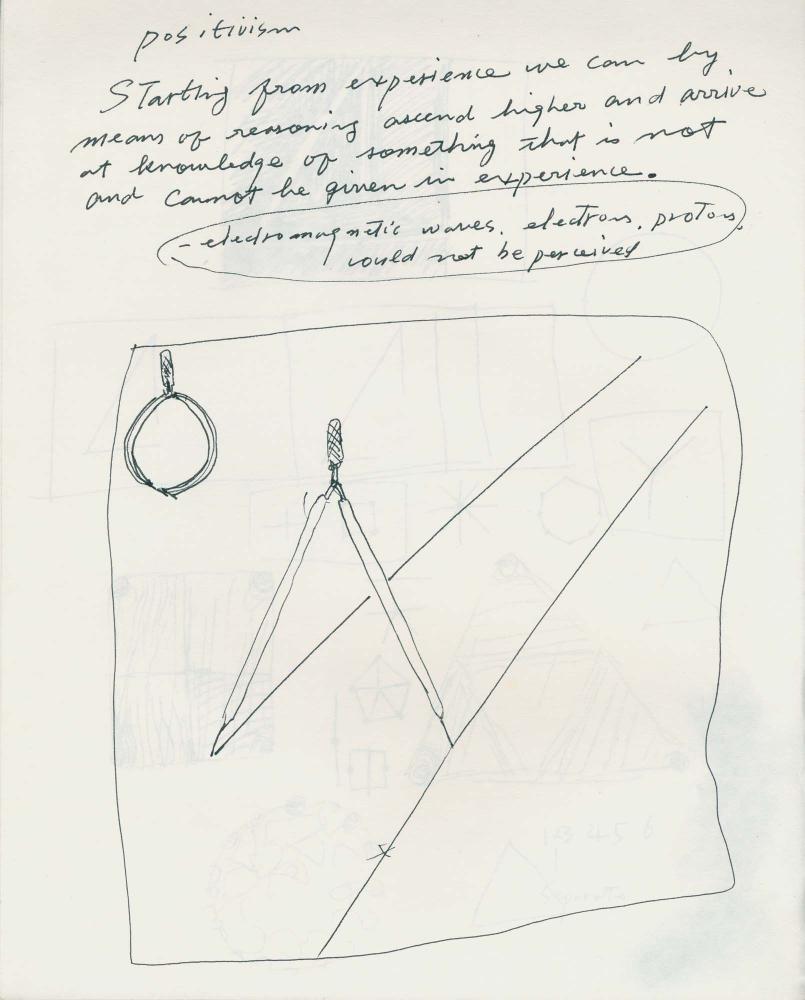 positivism
Starting from experience we can by
means of reasoning ascend higher and arrive
at knowledge of something that is not
and cannot be given in experience.
- electromagnetic waves, electrons, protons,
could not be perceived
123 45 6
Separate